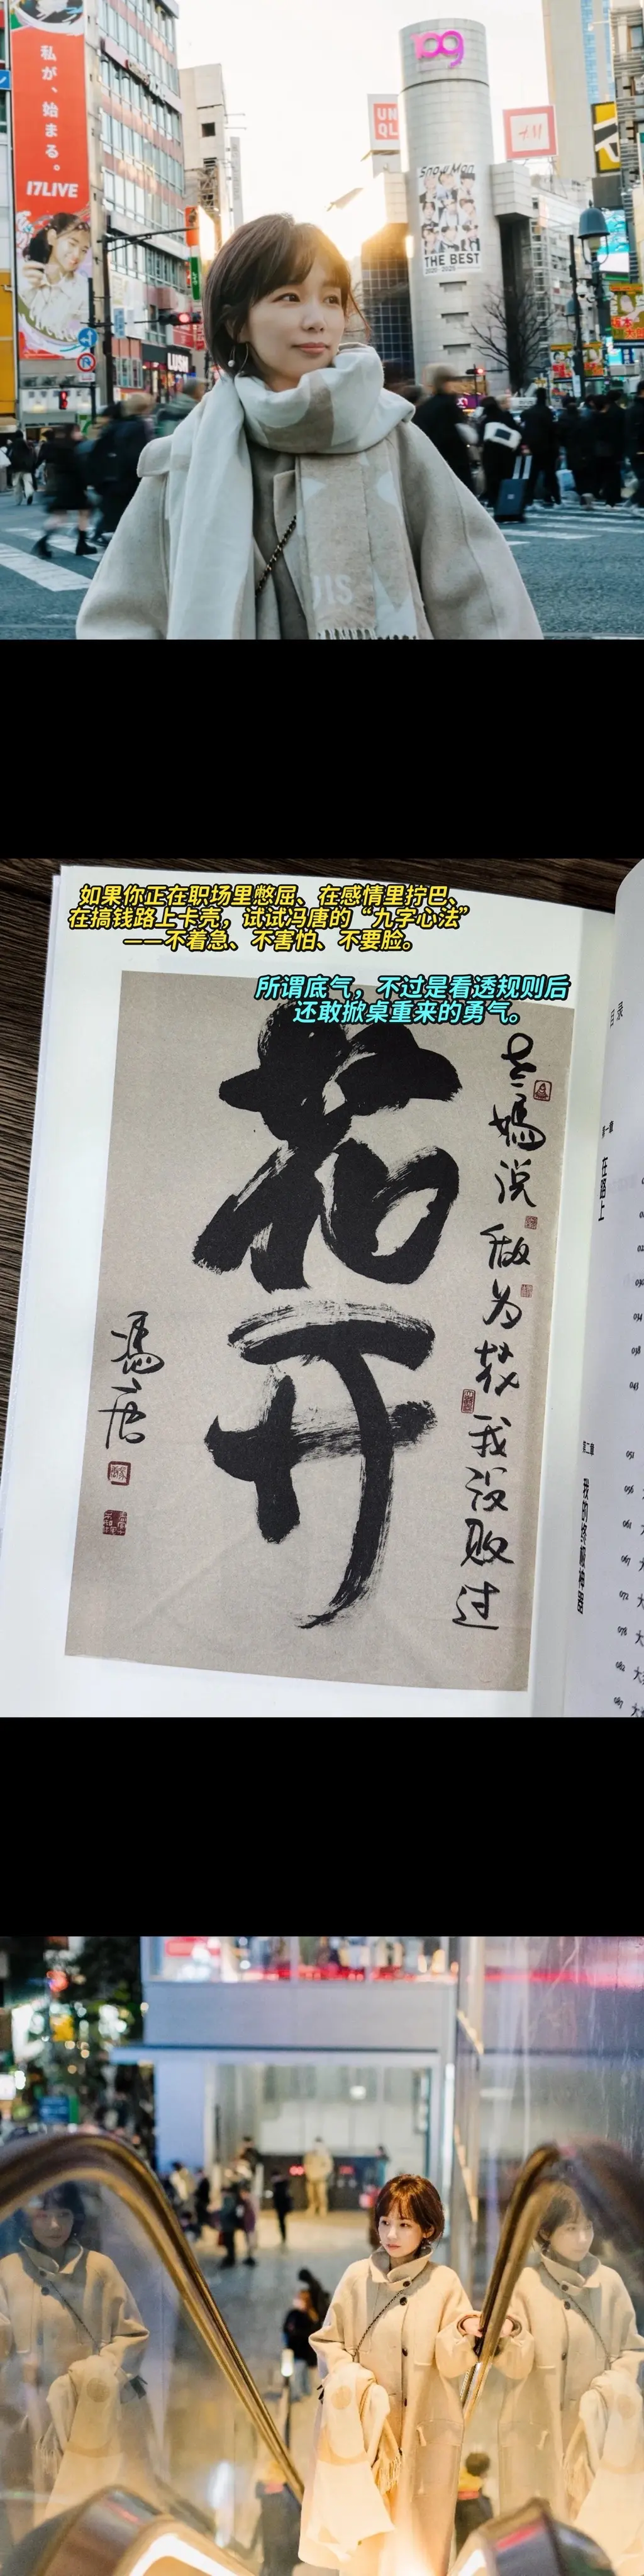 私が、始まる。
17LIVE
109
UNI
QL
H&M
Snow Man
THE BEST
2020-2025
LUSH
UIS
如果你正在职场里憋屈、在感情里拧巴、
在搞钱路上卡壳，试试冯唐的“九字心法”
——不着急、不害怕、不要脸。
所谓底气，不过是看透规则后
还敢掀桌重来的勇气。
老妈说做为花我没败过
花开
冯唐
目录
第一章
在路上
第二章
031
034
038
043
051
056
061
067
072
078
082
087